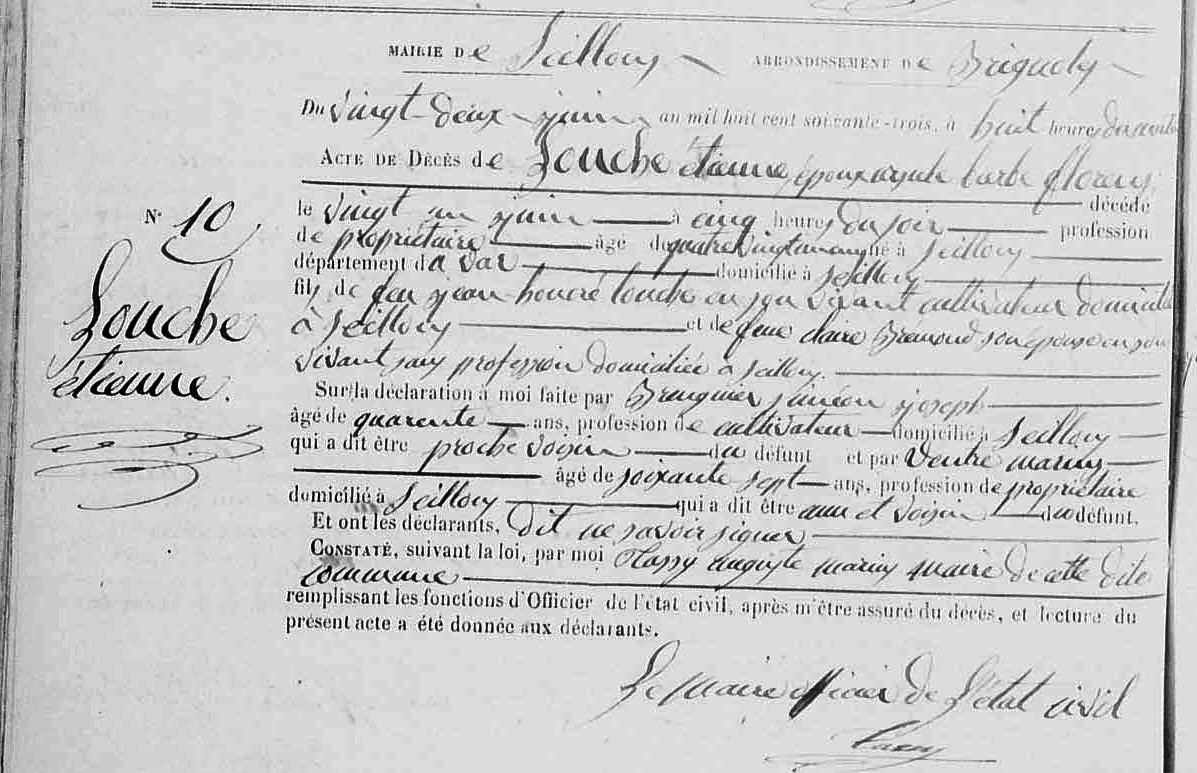 MAIRIE De Seillons ARRONDISSEMENT De Brignoles
Du vingt-deux juin an mil huit cent soixante-trois, à huit heures du matin
ACTE DE DÉCÈS de Louche étienne, époux Barbe florens
décédé
N° 10
le vingt un juin à cinq heures du soir profession
de propriétaire âgé de quatre vingt né à Seillons
département du var domicilié à Seillons
fils de feu jean honoré louche en son vivant cultivateur domicilié
Louche
à Seillons et de feue claire Bremond son épouse en son
étienne.
vivant sans profession domiciliée à Seillons.
Sur la déclaration à moi faite par Brenguier siméon joseph
âgé de quarente ans, profession de cultivateur domicilié à Seillons
qui a dit être proche voisin du défunt et par Ventre marius
âgé de soixante sept ans, profession de propriétaire
domicilié à Seillons qui a dit être ami et voisin du défunt.
Et ont les déclarants, dit ne savoir signer
CONSTATÉ, suivant la loi, par moi auguste marius maire de cette dite
commune
remplissant les fonctions d'Officier de l'état civil, après m'être assuré du décès, et lecture du
présent acte a été donnée aux déclarants.
Le maire officier de l'état civil